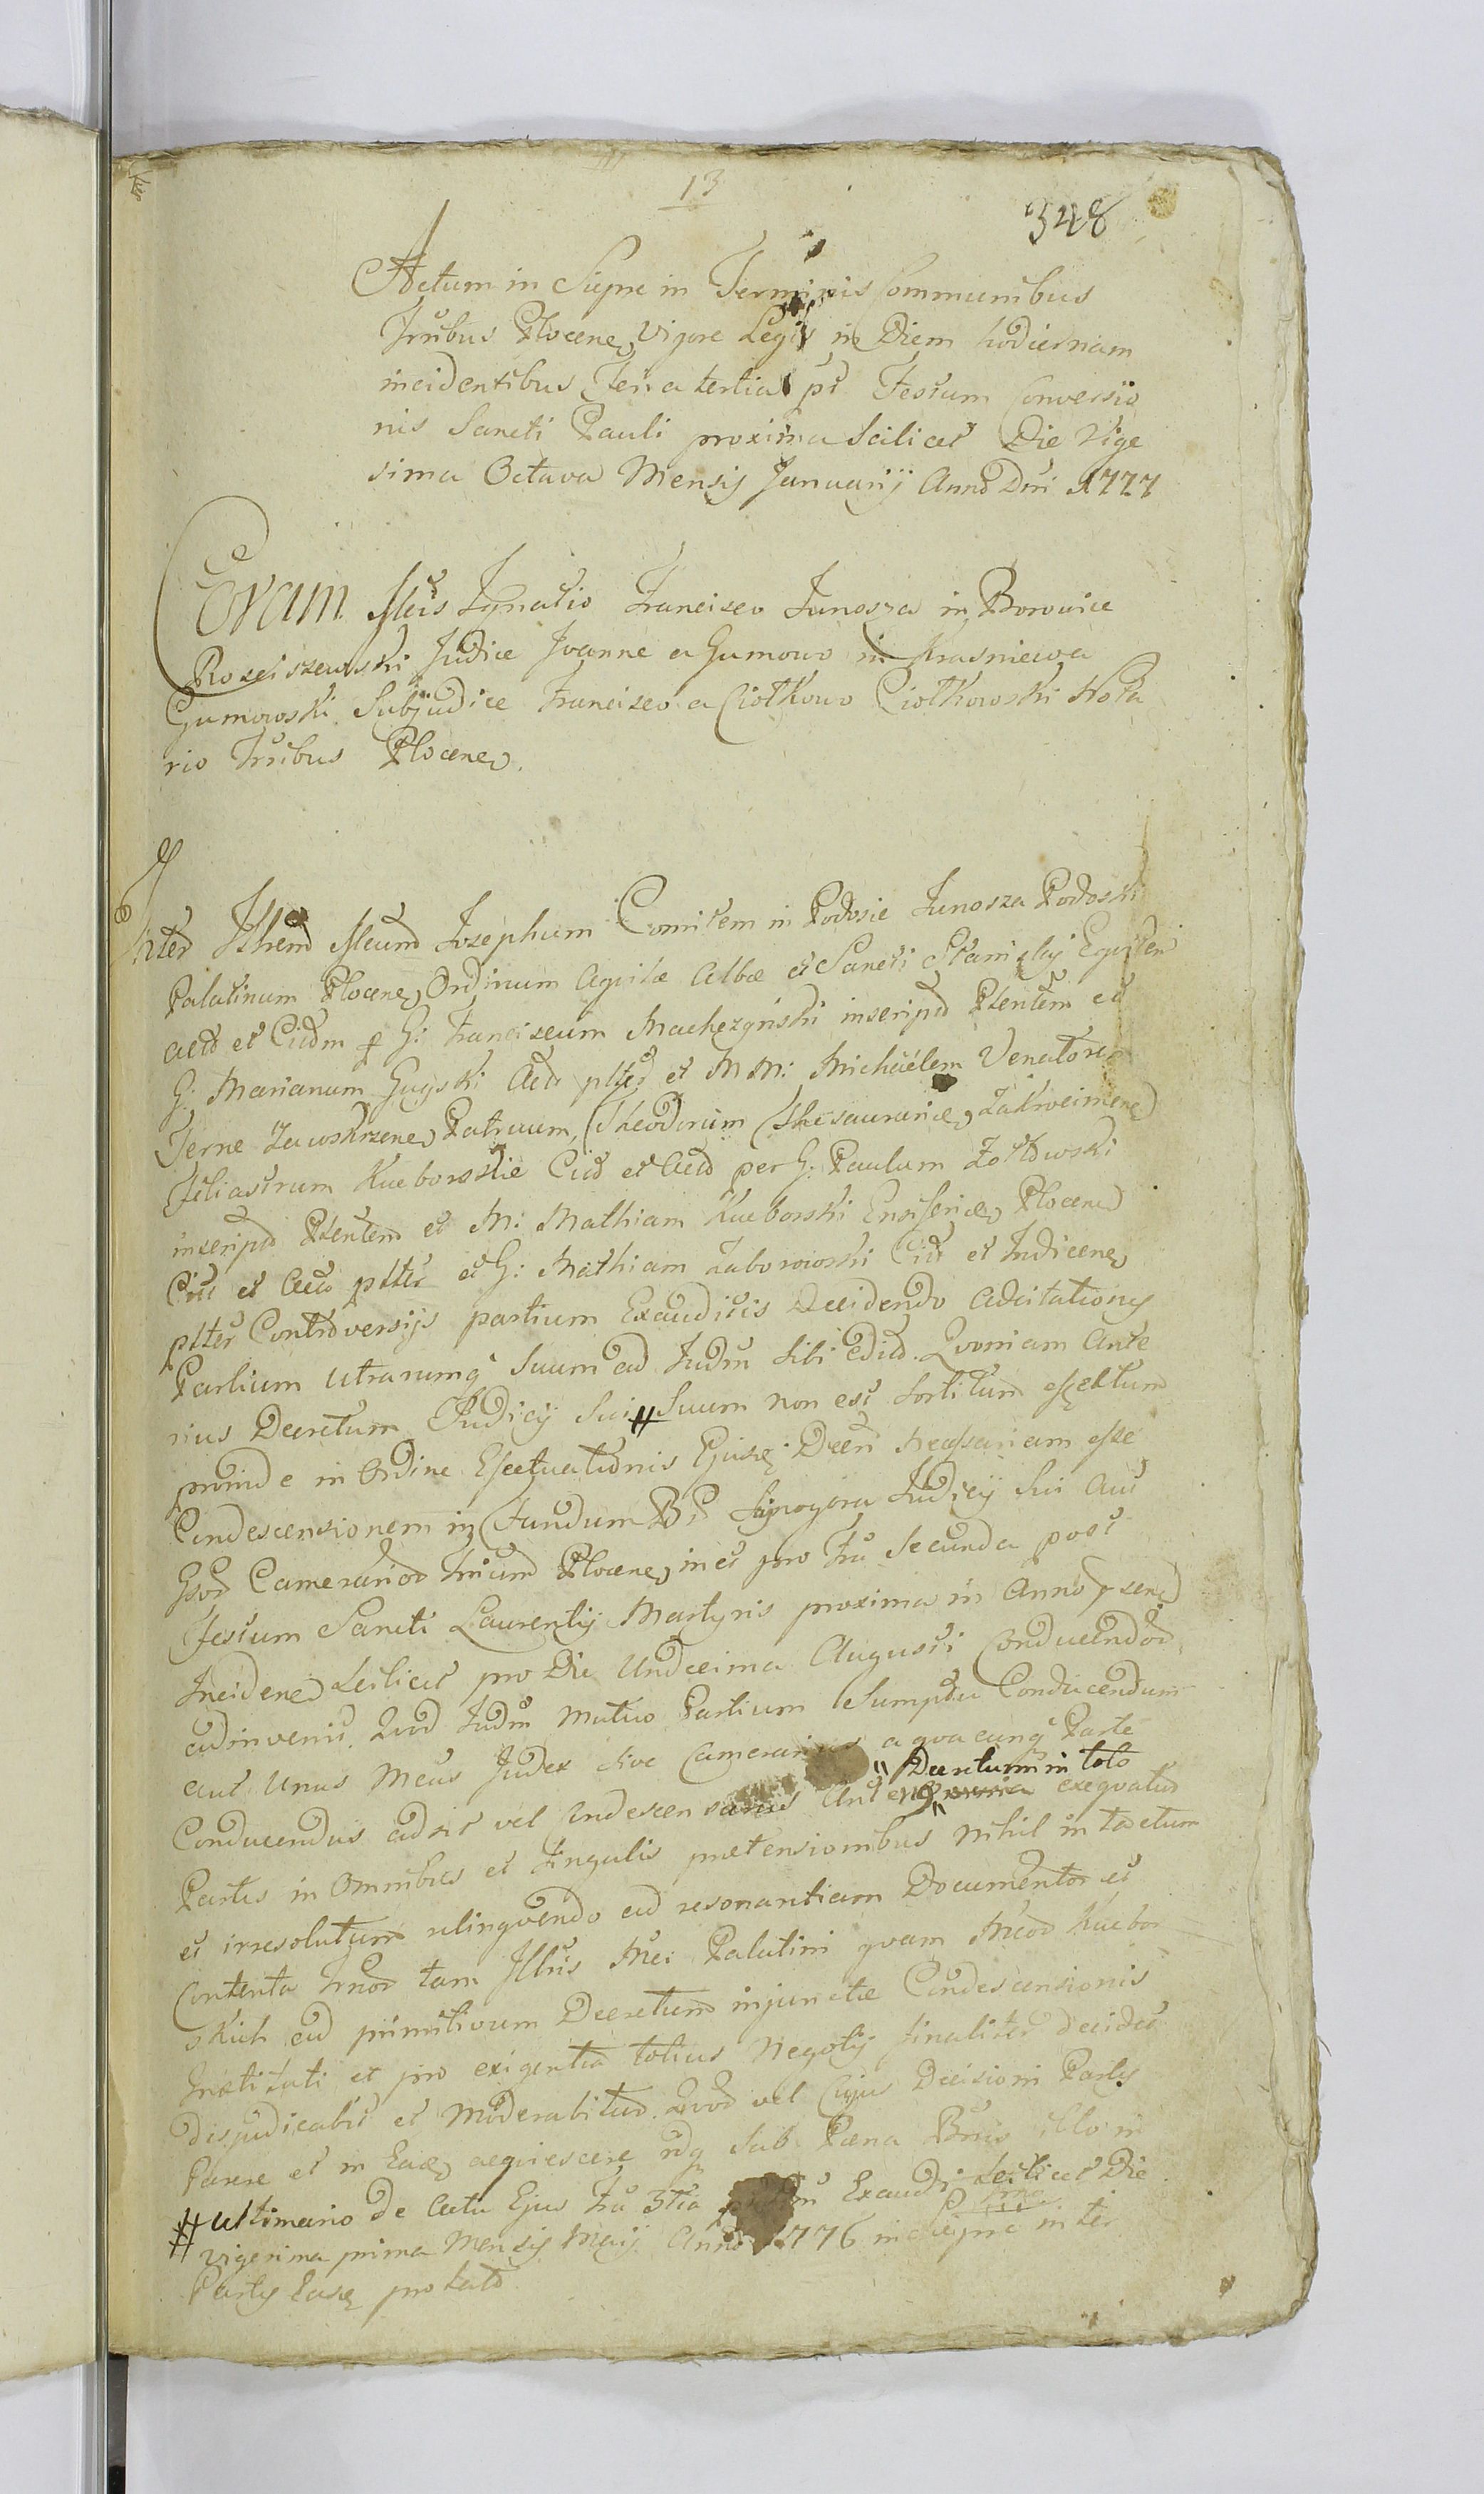 13
348
Actum in Siepre in Terminis Communibus
Trribus Plocen vigore Legis in Diem hodiernam
incidentibus Feria tertia pt Festum Conversio
nis Sancti Pauli proxima scilicet Die Vige
sima Octava Mensis Januarij Anno Dni 1777
Coram Mcis Ignatio Francisco Junosza in Borowice
Rosciszewski Judice Joanne a Gumowo in Krasniewa
Gumowski Subjudice Francisco a Ciołkowo Ciołkowski Nota
rio Trribus Plocen.
Inter Illrem Mcum Josephum Comitem in Podosie Junosza Podoski
Palatinum Plocen Ordinum Aquilæ Albæ et Sancti Stanislaj Equitem
act et Citm p G: Franciscum Machczynski inscript Ptentem et
G: Marianum Gayski Act ptter et M M: Michaëlem Venatorem
Terræ Zawskrzen Patruum, Theodorum Thesaurariæ Zakroeimen
Filiastrum Kucborskie Cit et Act per G: Paulum Zołtowski
inscript Ptentem et M: Mathiam Kucborski Ensiferiæ Plocen
Cit et Act ptter et G: Mathiam Zaborowski Cit et Indicen
ptter Controversijs partium Exauditis Decidendo Adcitationes
Partium utrarumq suum ad Judm sibi edit. Quoniam Ante
rius Decretum Judicij Sui # Suum non est sortitum effectum
proinde in Ordine Effectuationis Ejusd Decri Necessariam esse
Condescensionem in Fundum B: Lipogóra Judicij Sui Aut
Gsor Camerarior Trrium Plocen in et pro Fra Secunda post
Festum Sancti Laurentij Martyris proxima in Anno psen
Inciden scilicet pro Die Undecima Augusti Conducendor
adinvenit. Quod Judm mutuo Partium Sumptu Conducendum
aut Unus Mcus Judex sive Camerarius a quacunq Parte
" Decretum in toto
Conducendus adsit vel Condescensurus Ant exequatur
Partes in Omnibus et singulis prætensionibus nihil intactum
et irresolutum relinquendo ad resonantiam Documentor et
Contenta Trror tam Illris Mci Palatini quam Mcor Kucbor
skich ad primitivum Decretum injunctæ Condescensionis
Inætitati et pro exigentia totius Negotij finaliter decidet
disjudicabit et moderabitur. Quod vel Cujus Decisioni Partes
Parere et in Ea acquiescere sub Pæna illo in
# ultimario De Actu Ejus Fra 3tia Exaudi scilicet Die
vigesima prima Mensis Maij Anno 1776 in Siepre inter
Partes Easd prolato